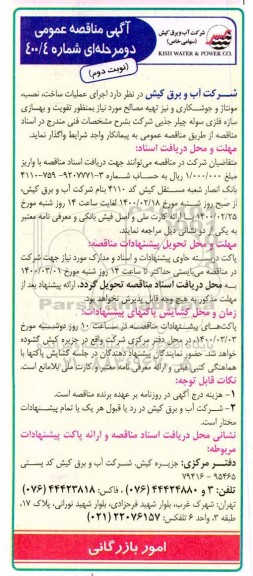 شرکت آب و برق کیش
(سهامی خاص)
KISH WATER & POWER CO.
آگهی مناقصه عمومی
دومرحله‌ای شماره ۴۰۰/۴
(نوبت دوم)
شـــرکت آب و برق کیش در نظر دارد اجرای عملیات ساخت، نصب،
مونتاژ و جوشکاری و نیز تهیه مصالح مورد نیاز بمنظور تقویت و بهسازی
سازه فلزی سوله چیلر جذبی شرکت بشرح مشخصات فنی مندرج در اسناد
مناقصه از طریق مناقصه عمومی به پیمانکار واجد شرایط واگذار نماید.
مهلت و محل دریافت اسناد:
متقاضیان شرکت در مناقصه می‌توانند جهت دریافت اسناد مناقصه با واریز
مبلغ ۱/۰۰۰/۰۰۰ ریال به حساب شماره ۳-۹۲۰۷۷۷۱-۷۵۹-۴۱۱۰
بانک انصار شعبه مستقل کیش کد ۴۱۱۰ بنام شرکت آب و برق کیش،
از صبح روز شنبه مورخ ۱۴۰۰/۰۲/۱۸ لغایت ساعت ۱۴ روز شنبه مورخ
۱۴۰۰/۰۲/۲۵ با ارائه کارت ملی و اصل فیش بانکی و معرفی نامه معتبر
به یکی از دو نشانی ذیل مراجعه نمایند.
مهلت و محل تحویل پیشنهادات مناقصه:
پاکت در بسته حاوی پیشنهادات و اسناد و مدارک مورد نیاز جهت شرکت
در مناقصه می‌بایستی حداکثر تا ساعت ۱۴ روز شنبه مورخ ۱۴۰۰/۰۳/۰۱
به محل دریافت اسناد مناقصه تحویل گردد. ارائه پیشنهاد بعد از
مهلت مذکور به هیچ وجه قابل پذیرش نخواهد بود.
زمان و محل گشایش پاکتهای پیشنهادات:
پاکت‌های پیشنهادات مناقصه در ساعت ۱۰ روز دوشنبه مورخ
۱۴۰۰/۰۳/۰۳، در محل دفتر مرکزی شرکت واقع در جزیره کیش گشوده
خواهد شد. حضور نمایندگان پیشنهاد دهندگان در جلسه گشایش پاکتها با
هماهنگی کتبی قبلی و ارائه معرفی نامه معتبر و کارت ملی بلامانع است.
نکات قابل توجه:
۱- هزینه درج آگهی در روزنامه بر عهده برنده مناقصه است.
۲- شرکت آب و برق کیش در رد یا قبول هر یک یا تمام پیشنهادات
مختار است.
نشانی محل دریافت اسناد مناقصه و ارائه پاکت پیشنهادات
مربوطه:
دفتر مرکزی: جزیره کیش، شرکت آب و برق کیش کد پستی
۹۵۴۶۵ - ۷۹۴۱۶
تلفن: ۳ و ۴۴۴۲۴۸۸۰ (۰۷۶) ، فاکس: ۴۴۴۲۳۸۱۸ (۰۷۶)
تهران: شهرک غرب، بلوار شهید فرحزادی، بلوار شهید نورانی، پلاک ۱۷،
طبقه ۳، واحد ۶ تلفکس: ۲۲۰۷۶۱۵۷ (۰۲۱)
امور بازرگانی